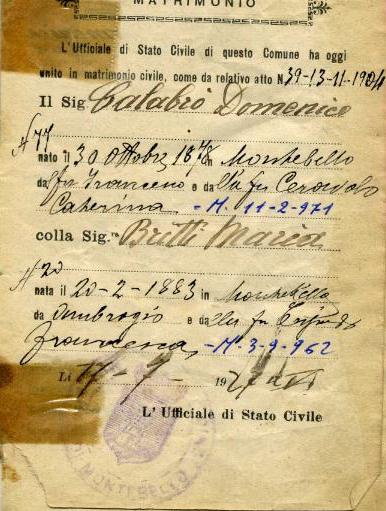 MATRIMONIO
L'Ufficiale di Stato Civile di questo Comune ha oggi
unito in matrimonio civile, come da relativo atto N. 39-13-11-1904
Il Sig Calabrò Domenico
N 77
nato il 30 Ottobre 1878 in Montebello
da fu Francesco e da
Caterina - M. 11-2-971
colla Sig.ra Britti Maria
N 20
nata il 20-2-1883 in Montebello
da Ambrogio e da fu
Francesca - M. 3-9-962
Li 17-9-1927
L' Ufficiale di Stato Civile
DI MONTEBELLO